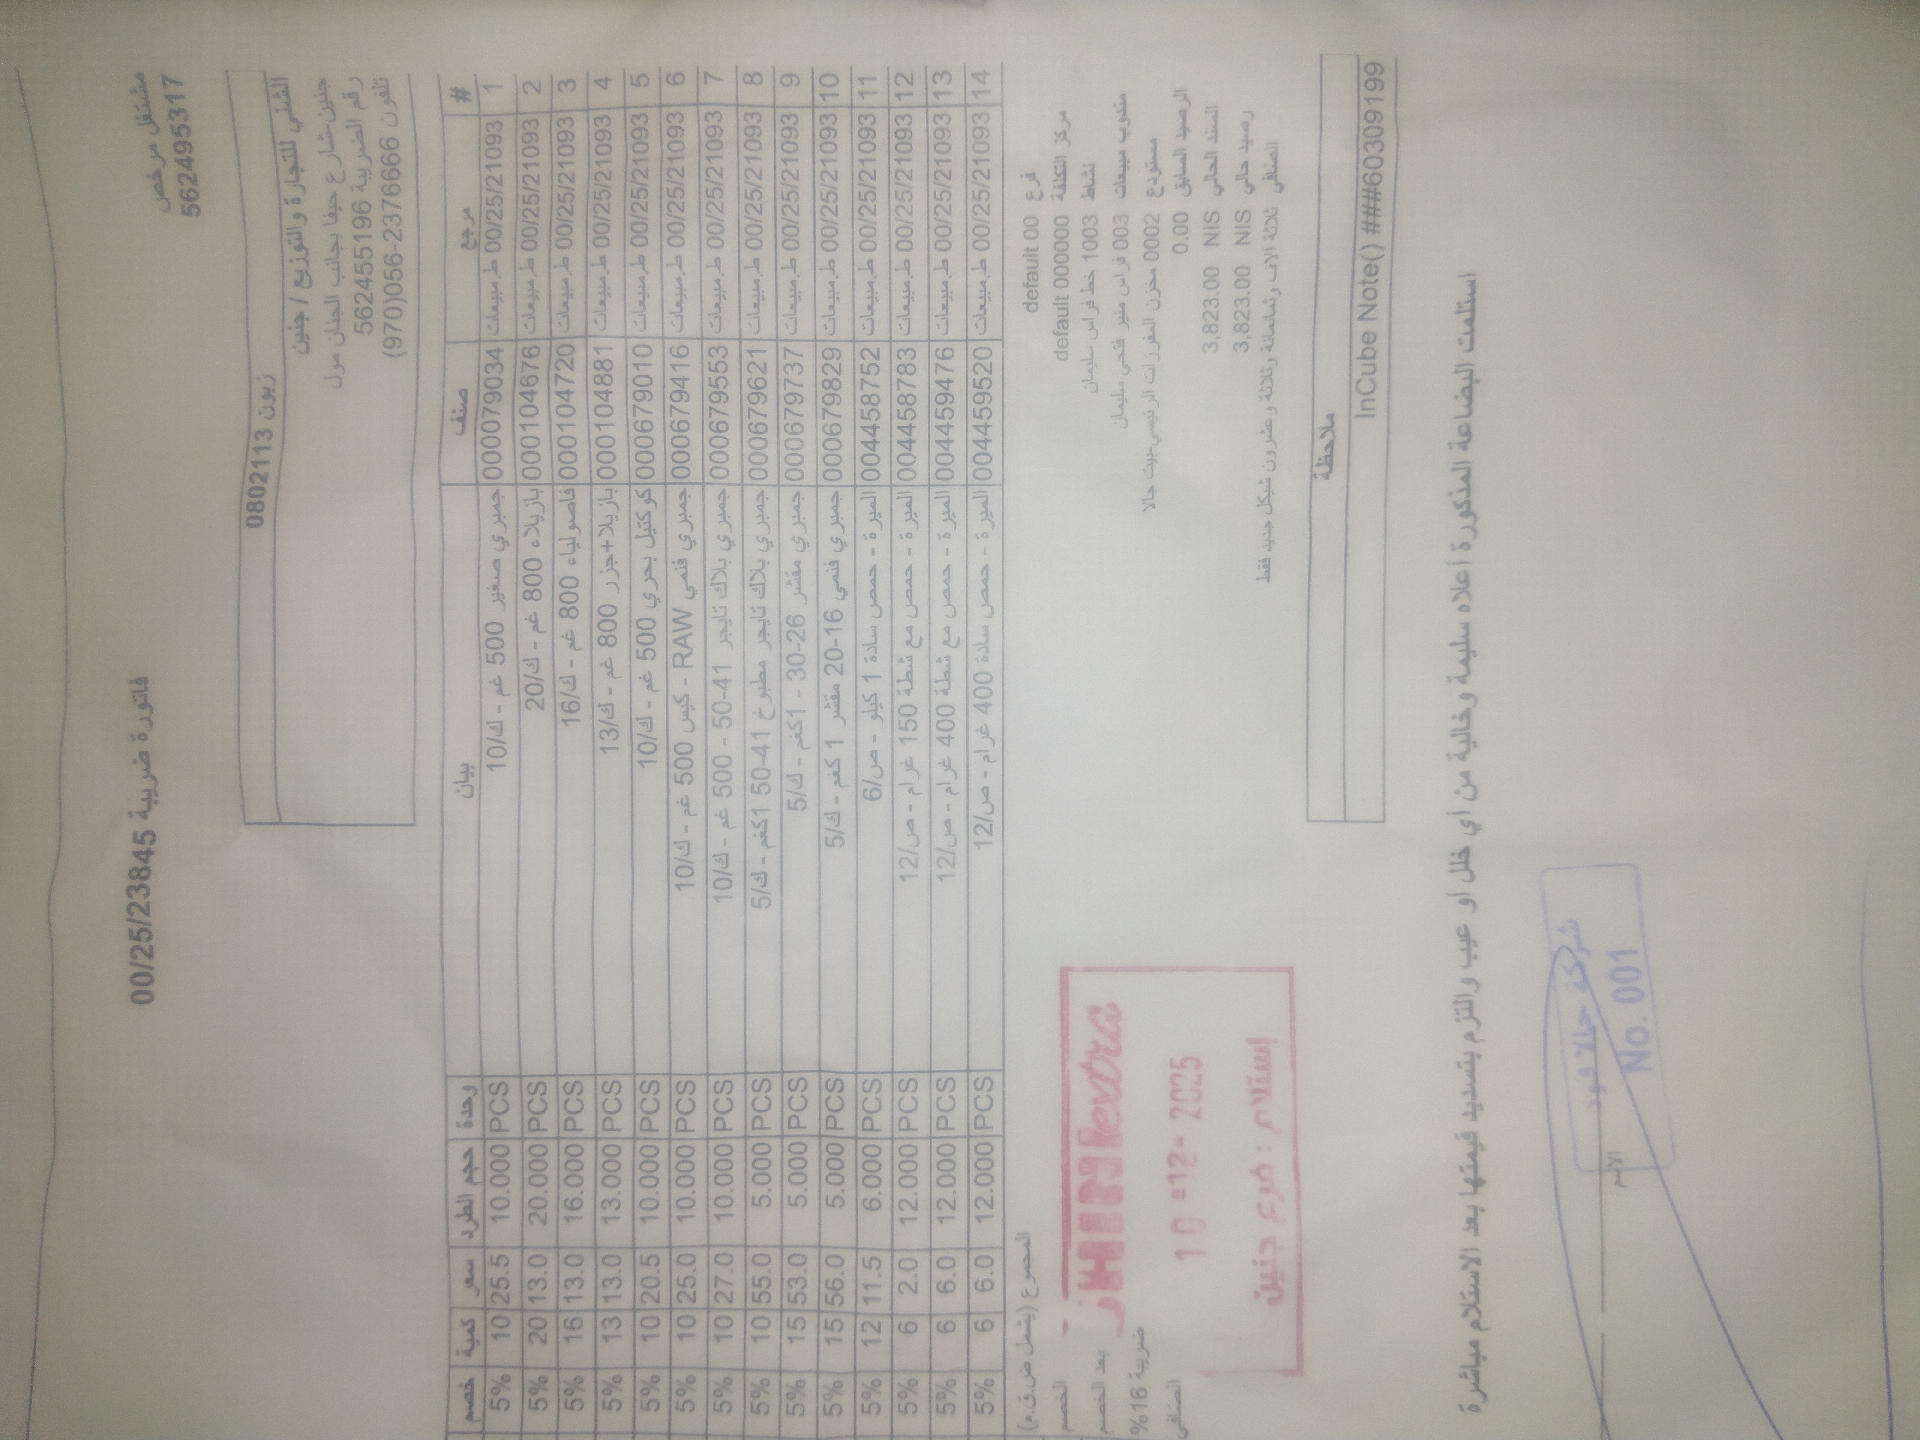 مشتغل مرخص
562495317
فاتورة ضريبة 00/25/23845
زبون 0802113
الشني للتجارة والتوزيع / جنين
جنين-شارع حيفا بجانب الجنان مول
رقم الضريبة 562455196
تلفون 2376666-056(970)
# مرجع صنف بيان وحدة حجم الطرد سعر كمية خصم
1 ط.مبيعات 00/25/21093 0000079034 جمبري صغير 500 غم - ك/10 PCS 10.000 25.5 10 5%
2 ط.مبيعات 00/25/21093 0000104676 بازيلاء 800 غم - ك/20 PCS 20.000 13.0 20 5%
3 ط.مبيعات 00/25/21093 0000104720 فاصولياء 800 غم - ك/16 PCS 16.000 13.0 16 5%
4 ط.مبيعات 00/25/21093 0000104881 بازيلا+جزر 800 غم - ك/13 PCS 13.000 13.0 13 5%
5 ط.مبيعات 00/25/21093 0000679010 كوكتيل بحري 500 غم - ك/10 PCS 10.000 20.5 10 5%
6 ط.مبيعات 00/25/21093 0000679416 جمبري فنمي RAW - كيس 500 غم - ك/10 PCS 10.000 25.0 10 5%
7 ط.مبيعات 00/25/21093 0000679553 جمبري بلاك تايجر 41-50 - 500 غم - ك/10 PCS 10.000 27.0 10 5%
8 ط.مبيعات 00/25/21093 0000679621 جمبري بلاك تايجر مطبوخ 41-50 1كغم - ك/5 PCS 5.000 55.0 10 5%
9 ط.مبيعات 00/25/21093 0000679737 جمبري مقشر 26-30 - 1كغم - ك/5 PCS 5.000 53.0 15 5%
10 ط.مبيعات 00/25/21093 0000679829 جمبري فنمي 16-20 مقشر 1 كغم - ك/5 PCS 5.000 56.0 15 5%
11 ط.مبيعات 00/25/21093 0044458752 الميرة - حمص سادة 1 كيلو - ص/6 PCS 6.000 11.5 12 5%
12 ط.مبيعات 00/25/21093 0044458783 الميرة - حمص مع شطة 150 غرام - ص/12 PCS 12.000 2.0 6 5%
13 ط.مبيعات 00/25/21093 0044459476 الميرة - حمص مع شطة 400 غرام - ص/12 PCS 12.000 6.0 6 5%
14 ط.مبيعات 00/25/21093 0044459520 الميرة - حمص سادة 400 غرام - ص/12 PCS 12.000 6.0 6 5%
فرع 00 default
مركز التكلفة 000000 default
نشاط 1003 خط فراس سليمان
مندوب مبيعات 003 فراس منير فتحي سليمان
مستودع 0002 مخزن المفرزات الرئيسي-بيت جالا
الرصيد السابق 0.00
السند الحالي NIS 3,823.00
رصيد حالي NIS 3,823.00
الصافي ثلاثة الاف وثمانمائة وثلاثة وعشرون شيكل جديد فقط
المجموع (يشمل ض.ق.م)
الخصم
بعد الخصم
ضريبة 16%
الصافي
extra
10 =12= 2025
إستلام : فرع جنين
ملاحظة
InCube Note() ###603091​99
استلمت البضاعة المذكورة أعلاه سليمة وخالية من أي خلل او عيب والتزم بتسديد قيمتها بعد الاستلام مباشرة
شركة حلا فود
No. 001
الاسم